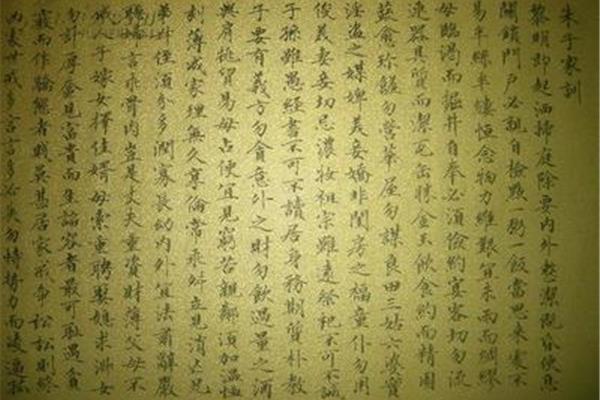 朱子家訓
黎明即起洒掃庭除要內外整潔既昏便息
關鎖門戶必親自檢點一粥一飯當思來處不
易半絲半縷恒念物力維艱宜未雨而綢繆
毋臨渴而掘井自奉必須儉約宴客切勿流
連器具質而潔瓦缶勝金玉飲食約而精園
蔬愈珍饈勿營華屋勿謀良田三姑六婆實
淫盜之媒婢美妾嬌非閨房之福童仆勿用
俊美妻妾切忌濃妝祖宗雖遠祭祀不可不誠
子孫雖愚經書不可不讀居身務期質朴教
子要有義方勿貪意外之財勿飲過量之酒
與肩挑貿易毋占便宜見窮苦親鄰須加溫恤
刻薄成家理無久享倫常乖舛立見消亡兄
弟叔侄須分多潤寡長幼內外宜法肅辭嚴
聽婦言乖骨肉豈是丈夫重資財薄父母不
成人子嫁女擇佳婿毋索重聘娶媳求淑女
勿計厚奩見富貴而生諂容者最可恥遇貧
窮而作驕態者賤莫甚居家戒爭訟訟則終
凶處世戒多言言多必失勿恃勢力而凌逼孤